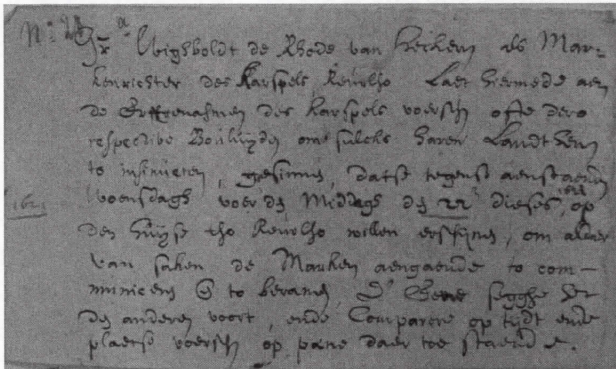 Wighboldt de Rhede van Heckeren als Mar-
kenrichter des Karspels Ruurlho Laet hiermede aen
de Erffgenahmen des Karspels voersch ofte dero
respective Bouluyden om sulcks haren Landtheren
to insinueren, gesinnen, datse tegenst aenstaende
Woensdagh voer den Middagh den 22 dieses, op
1621
den huyse tho Ruurlho willen erschynen, om aldaer
van saken de Marken aengaende to com-
municeren to beramen, D' Eene segghe der
den anderen voort, ende Compareere op tijdt ende
plaetse voersch op pene daer toe staende.